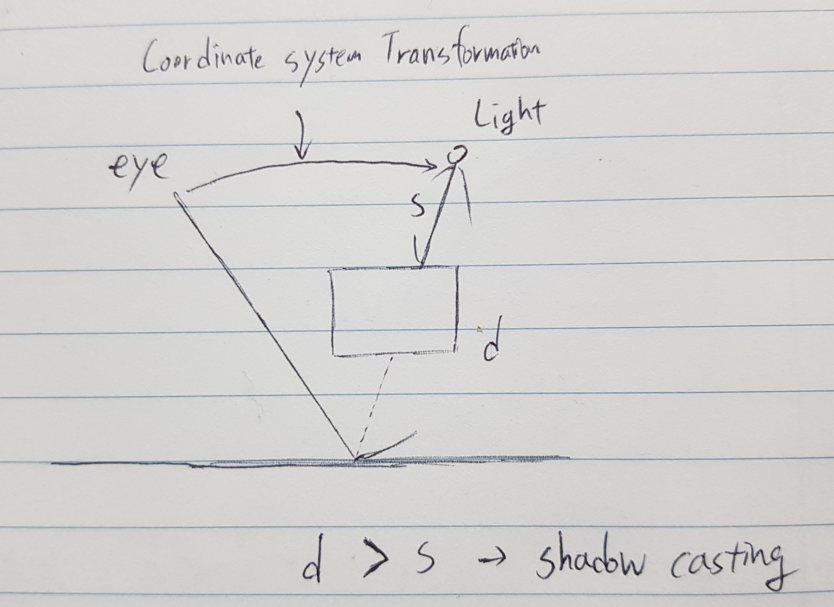 Coordinate system Transformation
Light
eye
s
d
d > s → shadow casting